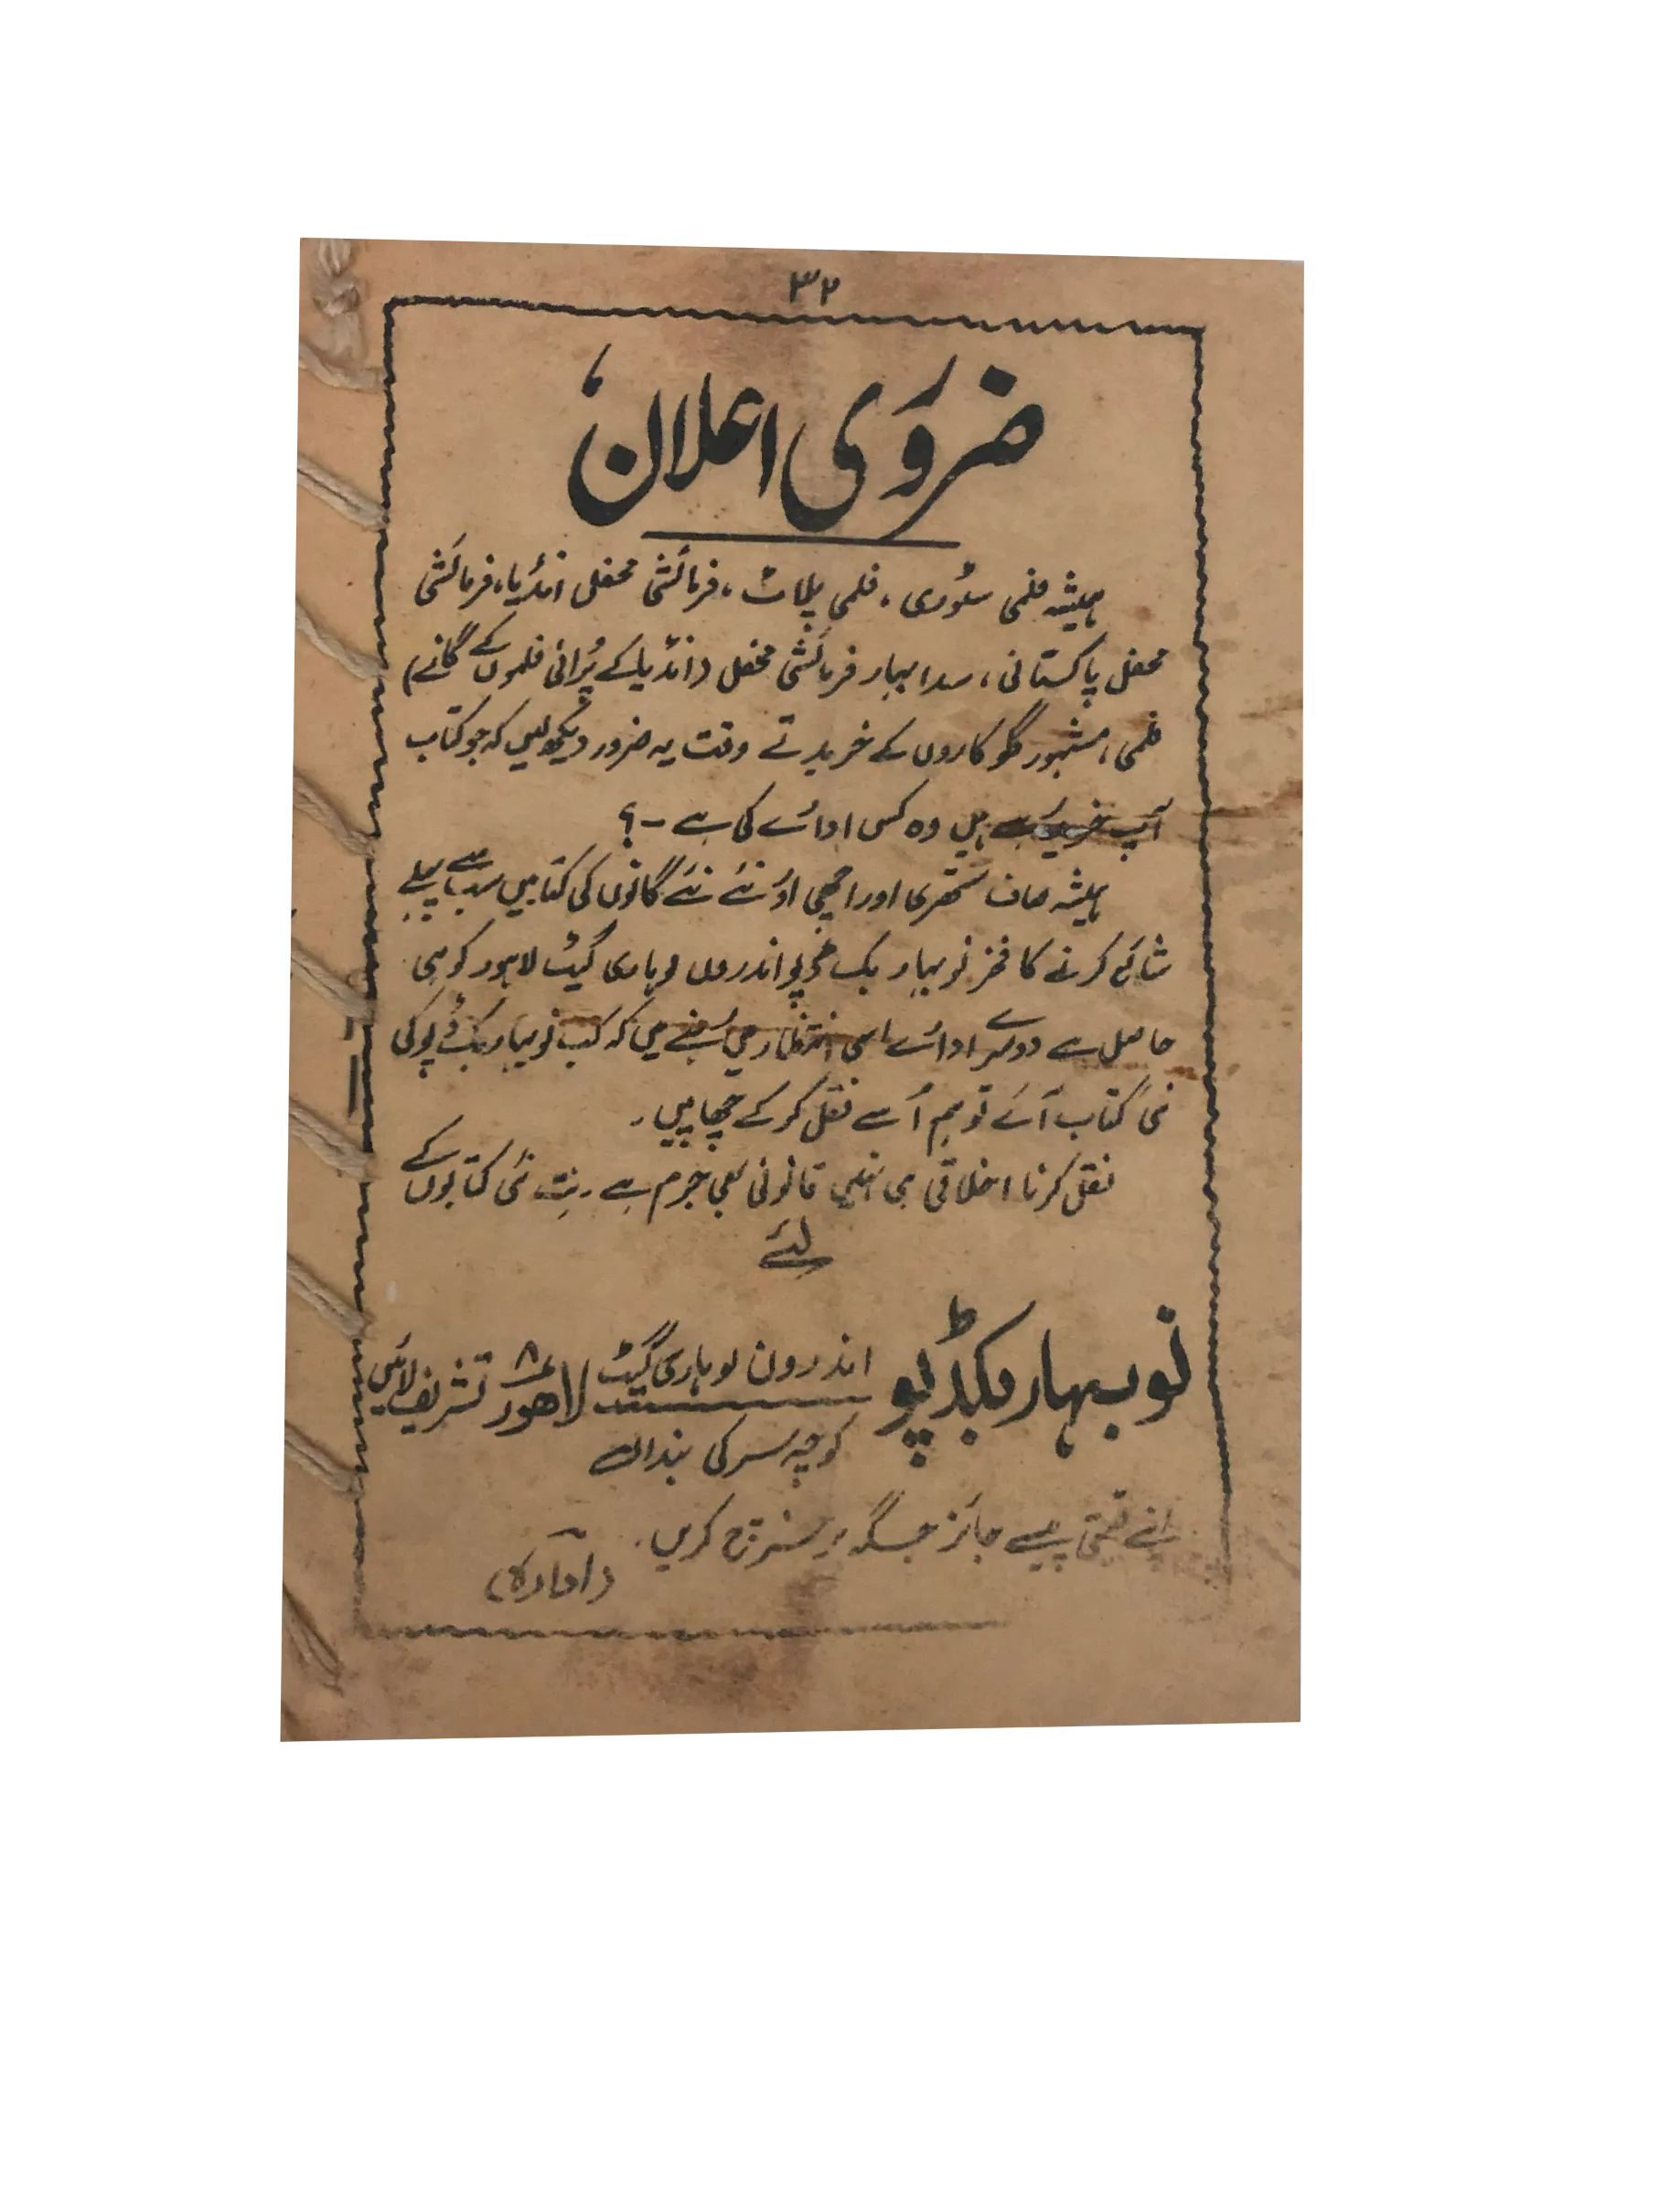 ۳۲
ضروری اعلان
ہمیشہ فلمی سٹوری، فلمی پلاٹ، فرمائشی محفل انڈیا، فرمائشی
محفل پاکستانی، سدا بہار فرمائشی محفل (انڈیا کے پُرانی فلموں کے گانے)
فلمی، مشہور گلوکاروں کے خریدتے وقت یہ ضرور دیکھ لیں کہ جو کتاب
آپ خرید رہے ہیں وہ کس ادارے کی ہے -؟
ہمیشہ صاف ستھری اور اچھی اور نئے نئے گانوں کی کتابیں سب سے پہلے
شائع کرنے کا فخر نوبہار بک ڈپو اندرون لوہاری گیٹ لاہور کو ہی
حاصل ہے دوسرے ادارے اسی انتظار میں رہتے ہیں کہ کب نوبہار بک ڈپو کی
نئی کتاب آئے تو ہم اُسے نقل کر کے چھاپیں۔
نقل کرنا اخلاقی ہی نہیں قانونی بھی جرم ہے۔ نِت نئی کتابوں کے
لئے
نوبہار بکڈپو اندرون لوہاری گیٹ لاھور ۸ تشریف لائیں
کوچہ سر کی بنداں
اپنے قیمتی پیسے جائز جگہ پر خرچ کریں۔
(ادارہ)